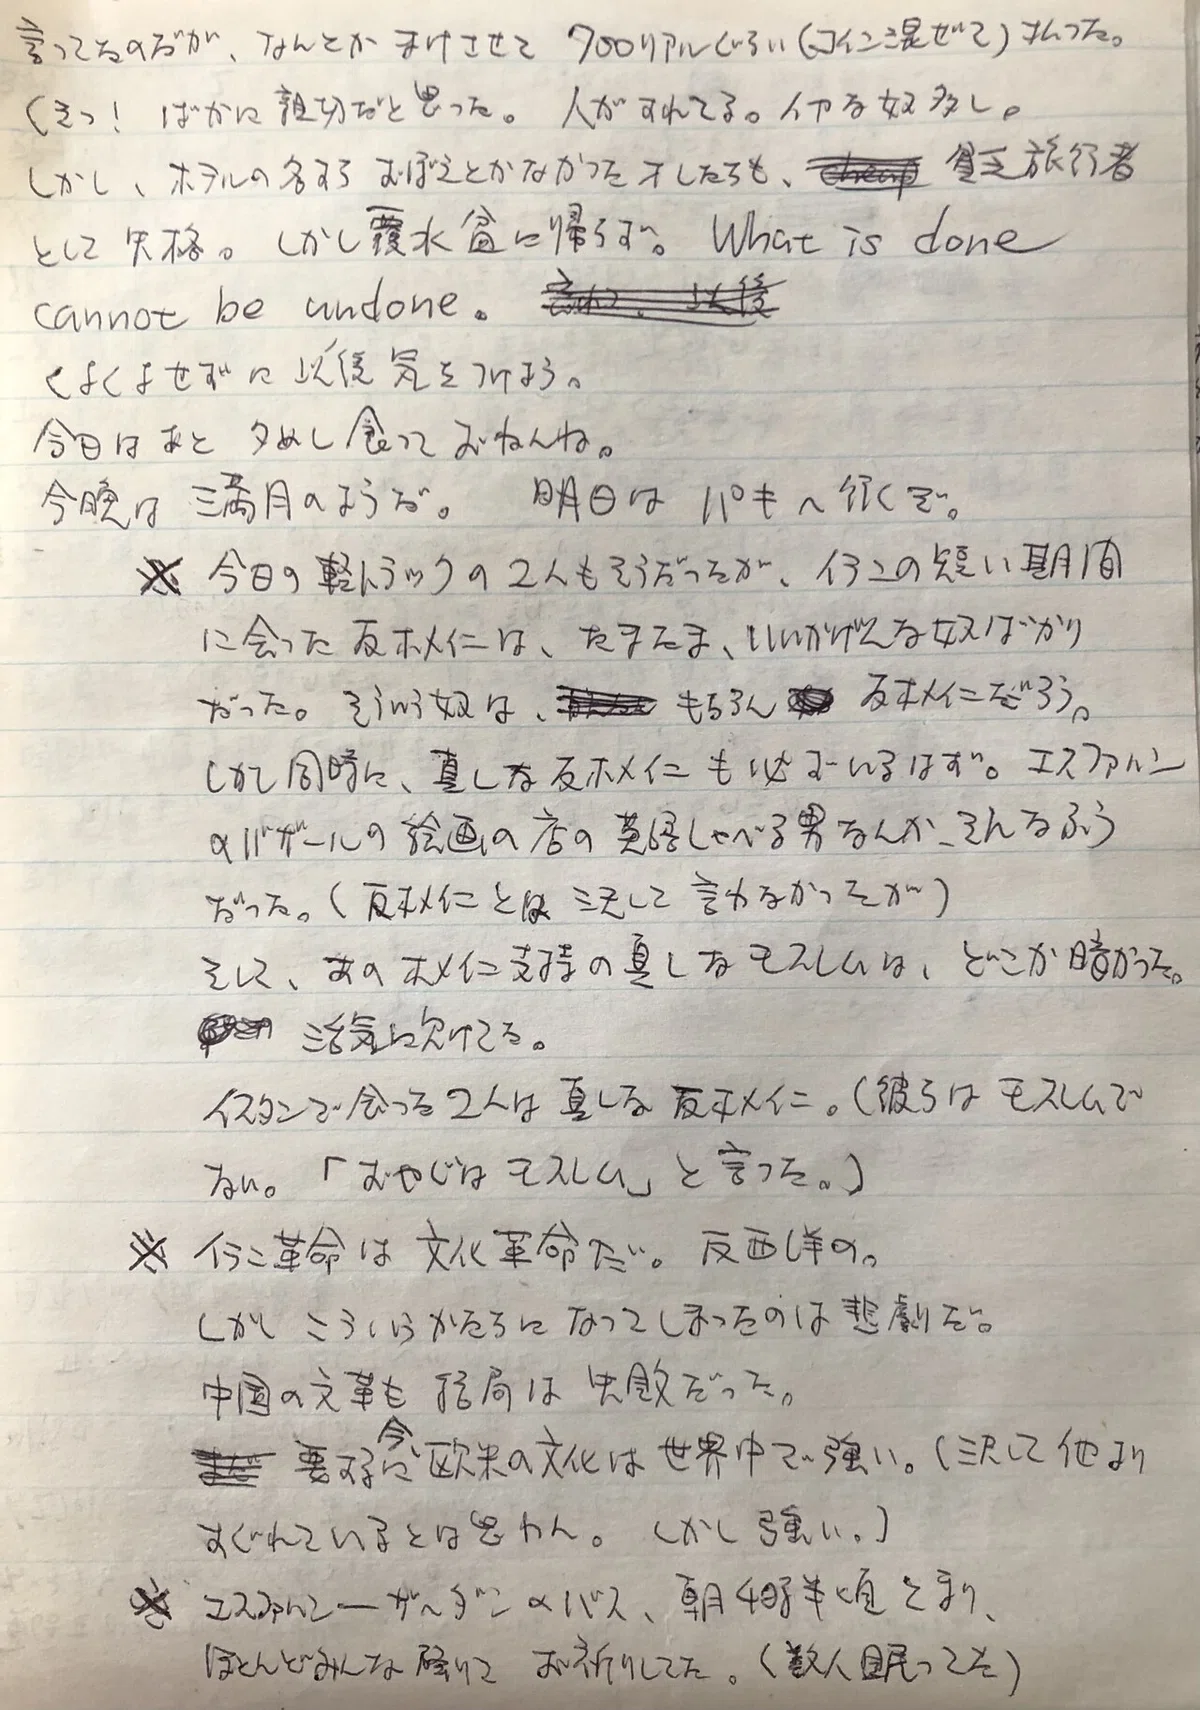 言ってるのだが、なんとかまけさせて 700リアルぐらい(コイン混ぜて)払った。
くそっ! ばかに親切だと思った。 人がすれてる。イヤな奴多し。
しかし、ホテルの名すら おぼえとかなかったオレたちも、 貧乏旅行者
として失格。しかし覆水盆に帰らず。What is done
cannot be undone。
くよくよせずに以後気をつけよう。
今日はあと 夕めし食っておねんね。
今晩は 満月のようだ。 明日は パキへ行くぞ。
※ 今日の軽トラックの2人もそうだったが、イランの短い期間
に会った反ホメイニは、たまたま、いいかげんな奴ばかり
だった。そういう奴は、もちろん 反ホメイニだろう。
しかし同時に、真しな反ホメイニも必ずいるはず。エスファハン
のバザールの絵画の店の英語しゃべる男なんか、そんなふう
だった。(反ホメイニとは 決して言わなかったが)
そして、あのホメイニ支持の真しなモスレムは、どこか暗かった。
活気に欠けてる。
イスタンで会った2人は真しな反ホメイニ。(彼らはモスレムで
ない。「おやじはモスレム」と言った。)
※ イラン革命は文化革命だ。反西洋の。
しかしこういうかたちになってしまったのは悲劇だ。
中国の文革も結局は失敗だった。
要するに今欧米の文化は世界中で強い。(決して他より
すぐれているとは思わん。しかし強い。)
※ エスファハン―ザヘダンのバス、朝4時半頃とまり、
ほとんどみんな降りてお祈りしてた。(数人眠ってた)